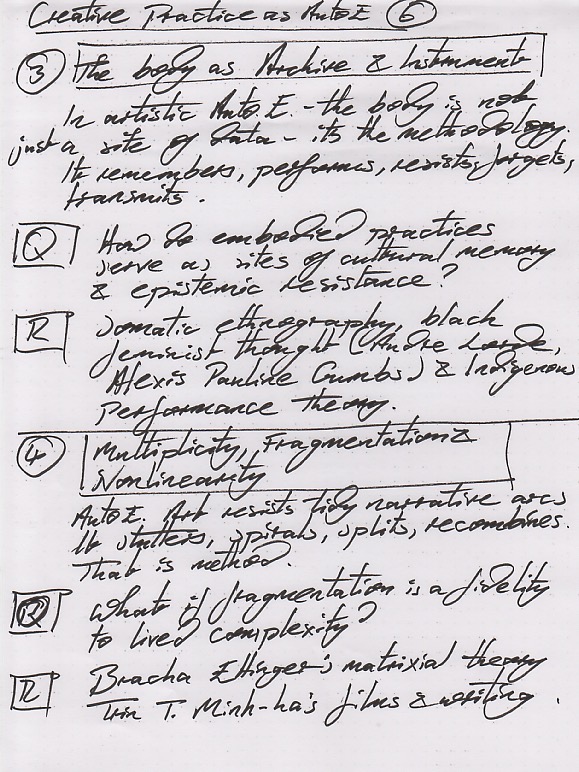 Creative Practice as AutoE ⑥
③ The body as Archive & Instrument
In artistic Auto.E. - the body is not
just a site of data - its the methodology.
It remembers, performs, resists, forgets,
transmits.
Q How do embodied practices
serve as sites of cultural memory
& epistemic resistance?
R Somatic ethnography, black
feminist thought (Audre Lorde,
Alexis Pauline Gumbs) & Indigenous
Performance theory.
④ Multiplicity, Fragmentation &
Nonlinearity
AutoE. Art resists tidy narrative arcs
It stutters, spirals, splits, recombines.
That is method.
Q What if fragmentation is a fidelity
to lived complexity?
R Bracha Ettinger's matrixial theory
Trin T. Minh-ha's films & writing.